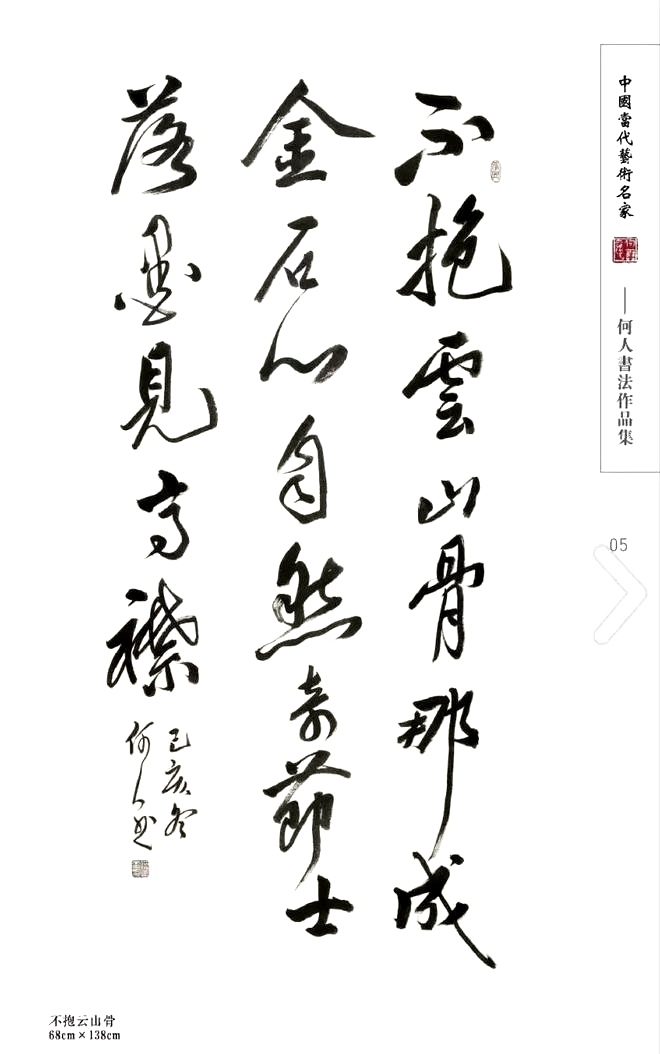 不抱雲山骨那成
金石心自然奇節士
落墨見高襟
己亥冬
何人書
中國當代藝術名家
——何人書法作品集
05
不抱云山骨
68cm×138cm